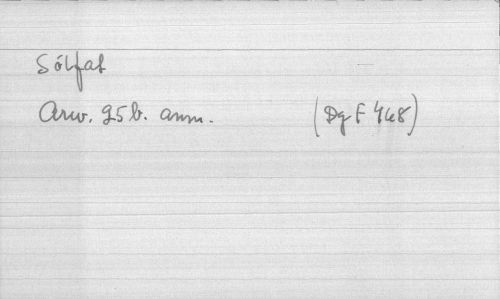 Sólfat
Arw. 95b. anm. (Dg F 468)